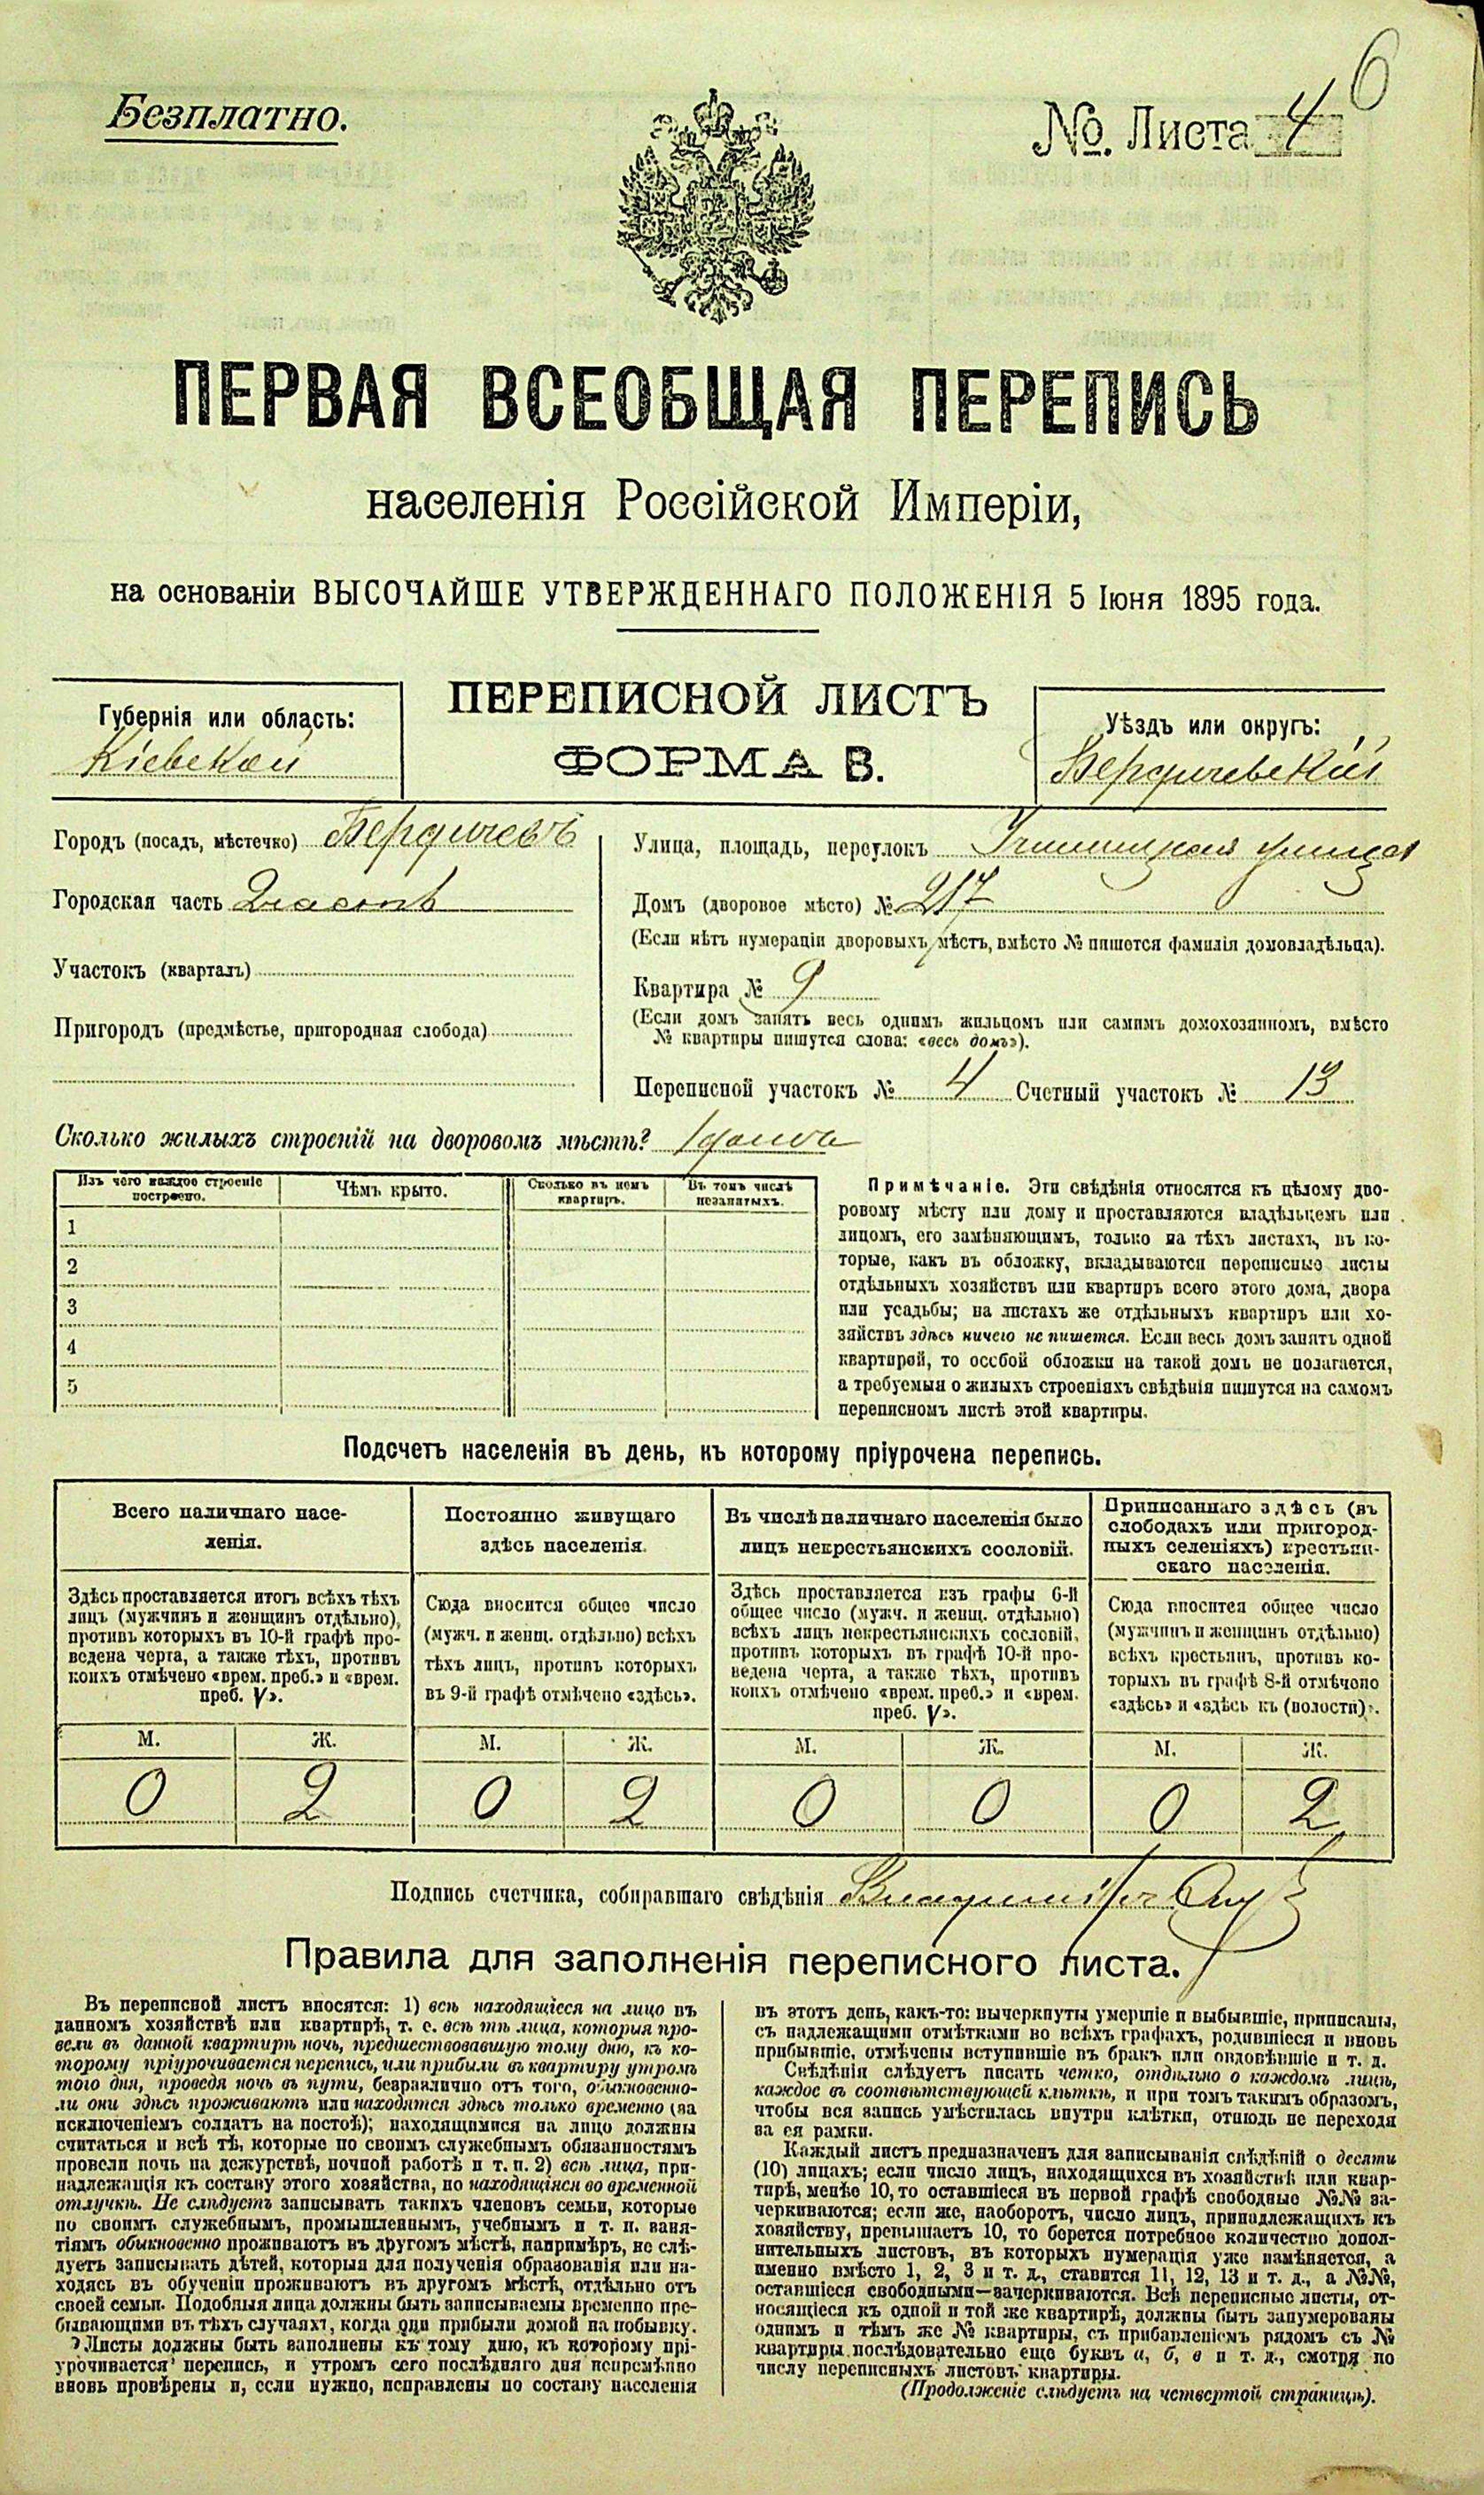 6
Безплатно.
№. Листа 4
ПЕРВАЯ ВСЕОБЩАЯ ПЕРЕПИСЬ
населенія Россійской Имперіи,
на основаніи ВЫСОЧАЙШЕ УТВЕРЖДЕННАГО ПОЛОЖЕНІЯ 5 Іюня 1895 года.
ПЕРЕПИСНОЙ ЛИСТЪ
ФОРМА В.
Губернія или область:
Кіевской
Уѣздъ или округъ:
Бердичевскій
Городъ (посадъ, мѣстечко) Бердичевъ
Городская часть 2 часть
Участокъ (кварталъ)
Пригородъ (предмѣстье, пригородная слобода)
Улица, площадь, переулокъ улица
Домъ (дворовое мѣсто) № 217
(Если нѣтъ нумераціи дворовыхъ мѣстъ, вмѣсто № пишется фамилія домовладѣльца).
Квартира № 9
(Если домъ занятъ весь однимъ жильцомъ или самимъ домохозяиномъ, вмѣсто
№ квартиры пишутся слова: «весь домъ»).
Переписной участокъ № 4 Счетный участокъ № 13
Сколько жилыхъ строеній на дворовомъ мѣстѣ? 1
Изъ чего каждое строеніе построено.
Чѣмъ крыто.
Сколько въ немъ квартиръ.
Въ томъ числѣ незанятыхъ.
1
2
3
4
5
Примѣчаніе. Эти свѣдѣнія относятся къ цѣлому дво-
ровому мѣсту или дому и проставляются владѣльцемъ или
лицомъ, его замѣняющимъ, только на тѣхъ листахъ, въ ко-
торые, какъ въ обложку, вкладываются переписные листы
отдѣльныхъ хозяйствъ или квартиръ всего этого дома, двора
или усадьбы; на листахъ же отдѣльныхъ квартиръ или хо-
зяйствъ здѣсь ничего не пишется. Если весь домъ занятъ одной
квартирой, то особой обложки на такой домъ не полагается,
а требуемыя о жилыхъ строеніяхъ свѣдѣнія пишутся на самомъ
переписномъ листѣ этой квартиры.
Подсчетъ населенія въ день, къ которому пріурочена перепись.
Всего наличнаго насе-
ленія.
Здѣсь проставляется итогъ всѣхъ тѣхъ
лицъ (мужчинъ и женщинъ отдѣльно),
противъ которыхъ въ 10-й графѣ про-
ведена черта, а также тѣхъ, противъ
коихъ отмѣчено «врем. преб.» и «врем.
преб. V».
М. Ж.
0 2
Постоянно живущаго
здѣсь населенія.
Сюда вносится общее число
(мужч. и женщ. отдѣльно) всѣхъ
тѣхъ лицъ, противъ которыхъ
въ 9-й графѣ отмѣчено «здѣсь».
М. Ж.
0 2
Въ числѣ наличнаго населенія было
лицъ некрестьянскихъ сословій.
Здѣсь проставляется изъ графы 6-й
общее число (мужч. и женщ. отдѣльно)
всѣхъ лицъ некрестьянскихъ сословій,
противъ которыхъ въ графѣ 10-й про-
ведена черта, а также тѣхъ, противъ
коихъ отмѣчено «врем. преб.» и «врем.
преб. V».
М. Ж.
0 0
Приписаннаго здѣсь (въ
слободахъ или пригород-
ныхъ селеніяхъ) крестьян-
скаго населенія.
Сюда вносится общее число
(мужчинъ и женщинъ отдѣльно)
всѣхъ крестьянъ, противъ ко-
торыхъ въ графѣ 8-й отмѣчено
«здѣсь» и «здѣсь къ (волости)».
М. Ж.
0 2
Подпись счетчика, собиравшаго свѣдѣнія
Правила для заполненія переписного листа.
Въ переписной листъ вносятся: 1) всѣ находящіеся на лицо въ
данномъ хозяйствѣ или квартирѣ, т. е. всѣ тѣ лица, которыя про-
вели въ данной квартирѣ ночь, предшествовавшую тому дню, къ ко-
торому пріурочивается перепись, или прибыли въ квартиру утромъ
того дня, проведя ночь въ пути, безразлично отъ того, обыкновенно-
ли они здѣсь проживаютъ или находятся здѣсь только временно (за
исключеніемъ солдатъ на постоѣ); находящимися на лицо должны
считаться и всѣ тѣ, которые по своимъ служебнымъ обязанностямъ
провели ночь на дежурствѣ, ночной работѣ и т. п. 2) всѣ лица, при-
надлежащія къ составу этого хозяйства, но находящіяся во временной
отлучкѣ. Не слѣдуетъ записывать такихъ членовъ семьи, которые
по своимъ служебнымъ, промышленнымъ, учебнымъ и т. п. заня-
тіямъ обыкновенно проживаютъ въ другомъ мѣстѣ, напримѣръ, не слѣ-
дуетъ записывать дѣтей, которыя для полученія образованія или на-
ходясь въ обученіи проживаютъ въ другомъ мѣстѣ, отдѣльно отъ
своей семьи. Подобныя лица должны быть записываемы временно пре-
бывающими въ тѣхъ случаяхъ, когда они прибыли домой на побывку.
Листы должны быть заполнены къ тому дню, къ которому прі-
урочивается перепись, и утромъ сего послѣдняго дня непремѣнно
вновь провѣрены и, если нужно, исправлены по составу населенія
въ этотъ день, какъ-то: вычеркнуты умершіе и выбывшіе, приписаны,
съ надлежащими отмѣтками во всѣхъ графахъ, родившіеся и вновь
прибывшіе, отмѣчены вступившіе въ бракъ или овдовѣвшіе и т. д.
Свѣдѣнія слѣдуетъ писать четко, отдѣльно о каждомъ лицѣ,
каждое въ соотвѣтствующей клѣткѣ, и при томъ такимъ образомъ,
чтобы вся запись умѣстилась внутри клѣтки, отнюдь не переходя
за ея рамки.
Каждый листъ предназначенъ для записыванія свѣдѣній о десяти
(10) лицахъ; если число лицъ, находящихся въ хозяйствѣ или квар-
тирѣ, менѣе 10, то оставшіеся въ первой графѣ свободные №№ за-
черкиваются; если же, наоборотъ, число лицъ, принадлежащихъ къ
хозяйству, превышаетъ 10, то берется потребное количество допол-
нительныхъ листовъ, въ которыхъ нумерація уже измѣняется, а
именно вмѣсто 1, 2, 3 и т. д., ставится 11, 12, 13 и т. д., а №№,
оставшіеся свободными—зачеркиваются. Всѣ переписные листы, от-
носящіеся къ одной и той же квартирѣ, должны быть занумерованы
однимъ и тѣмъ же № квартиры, съ прибавленіемъ рядомъ съ №
квартиры послѣдовательно еще буквъ а, б, в и т. д., смотря по
числу переписныхъ листовъ квартиры.
(Продолженіе слѣдуетъ на четвертой страницѣ).